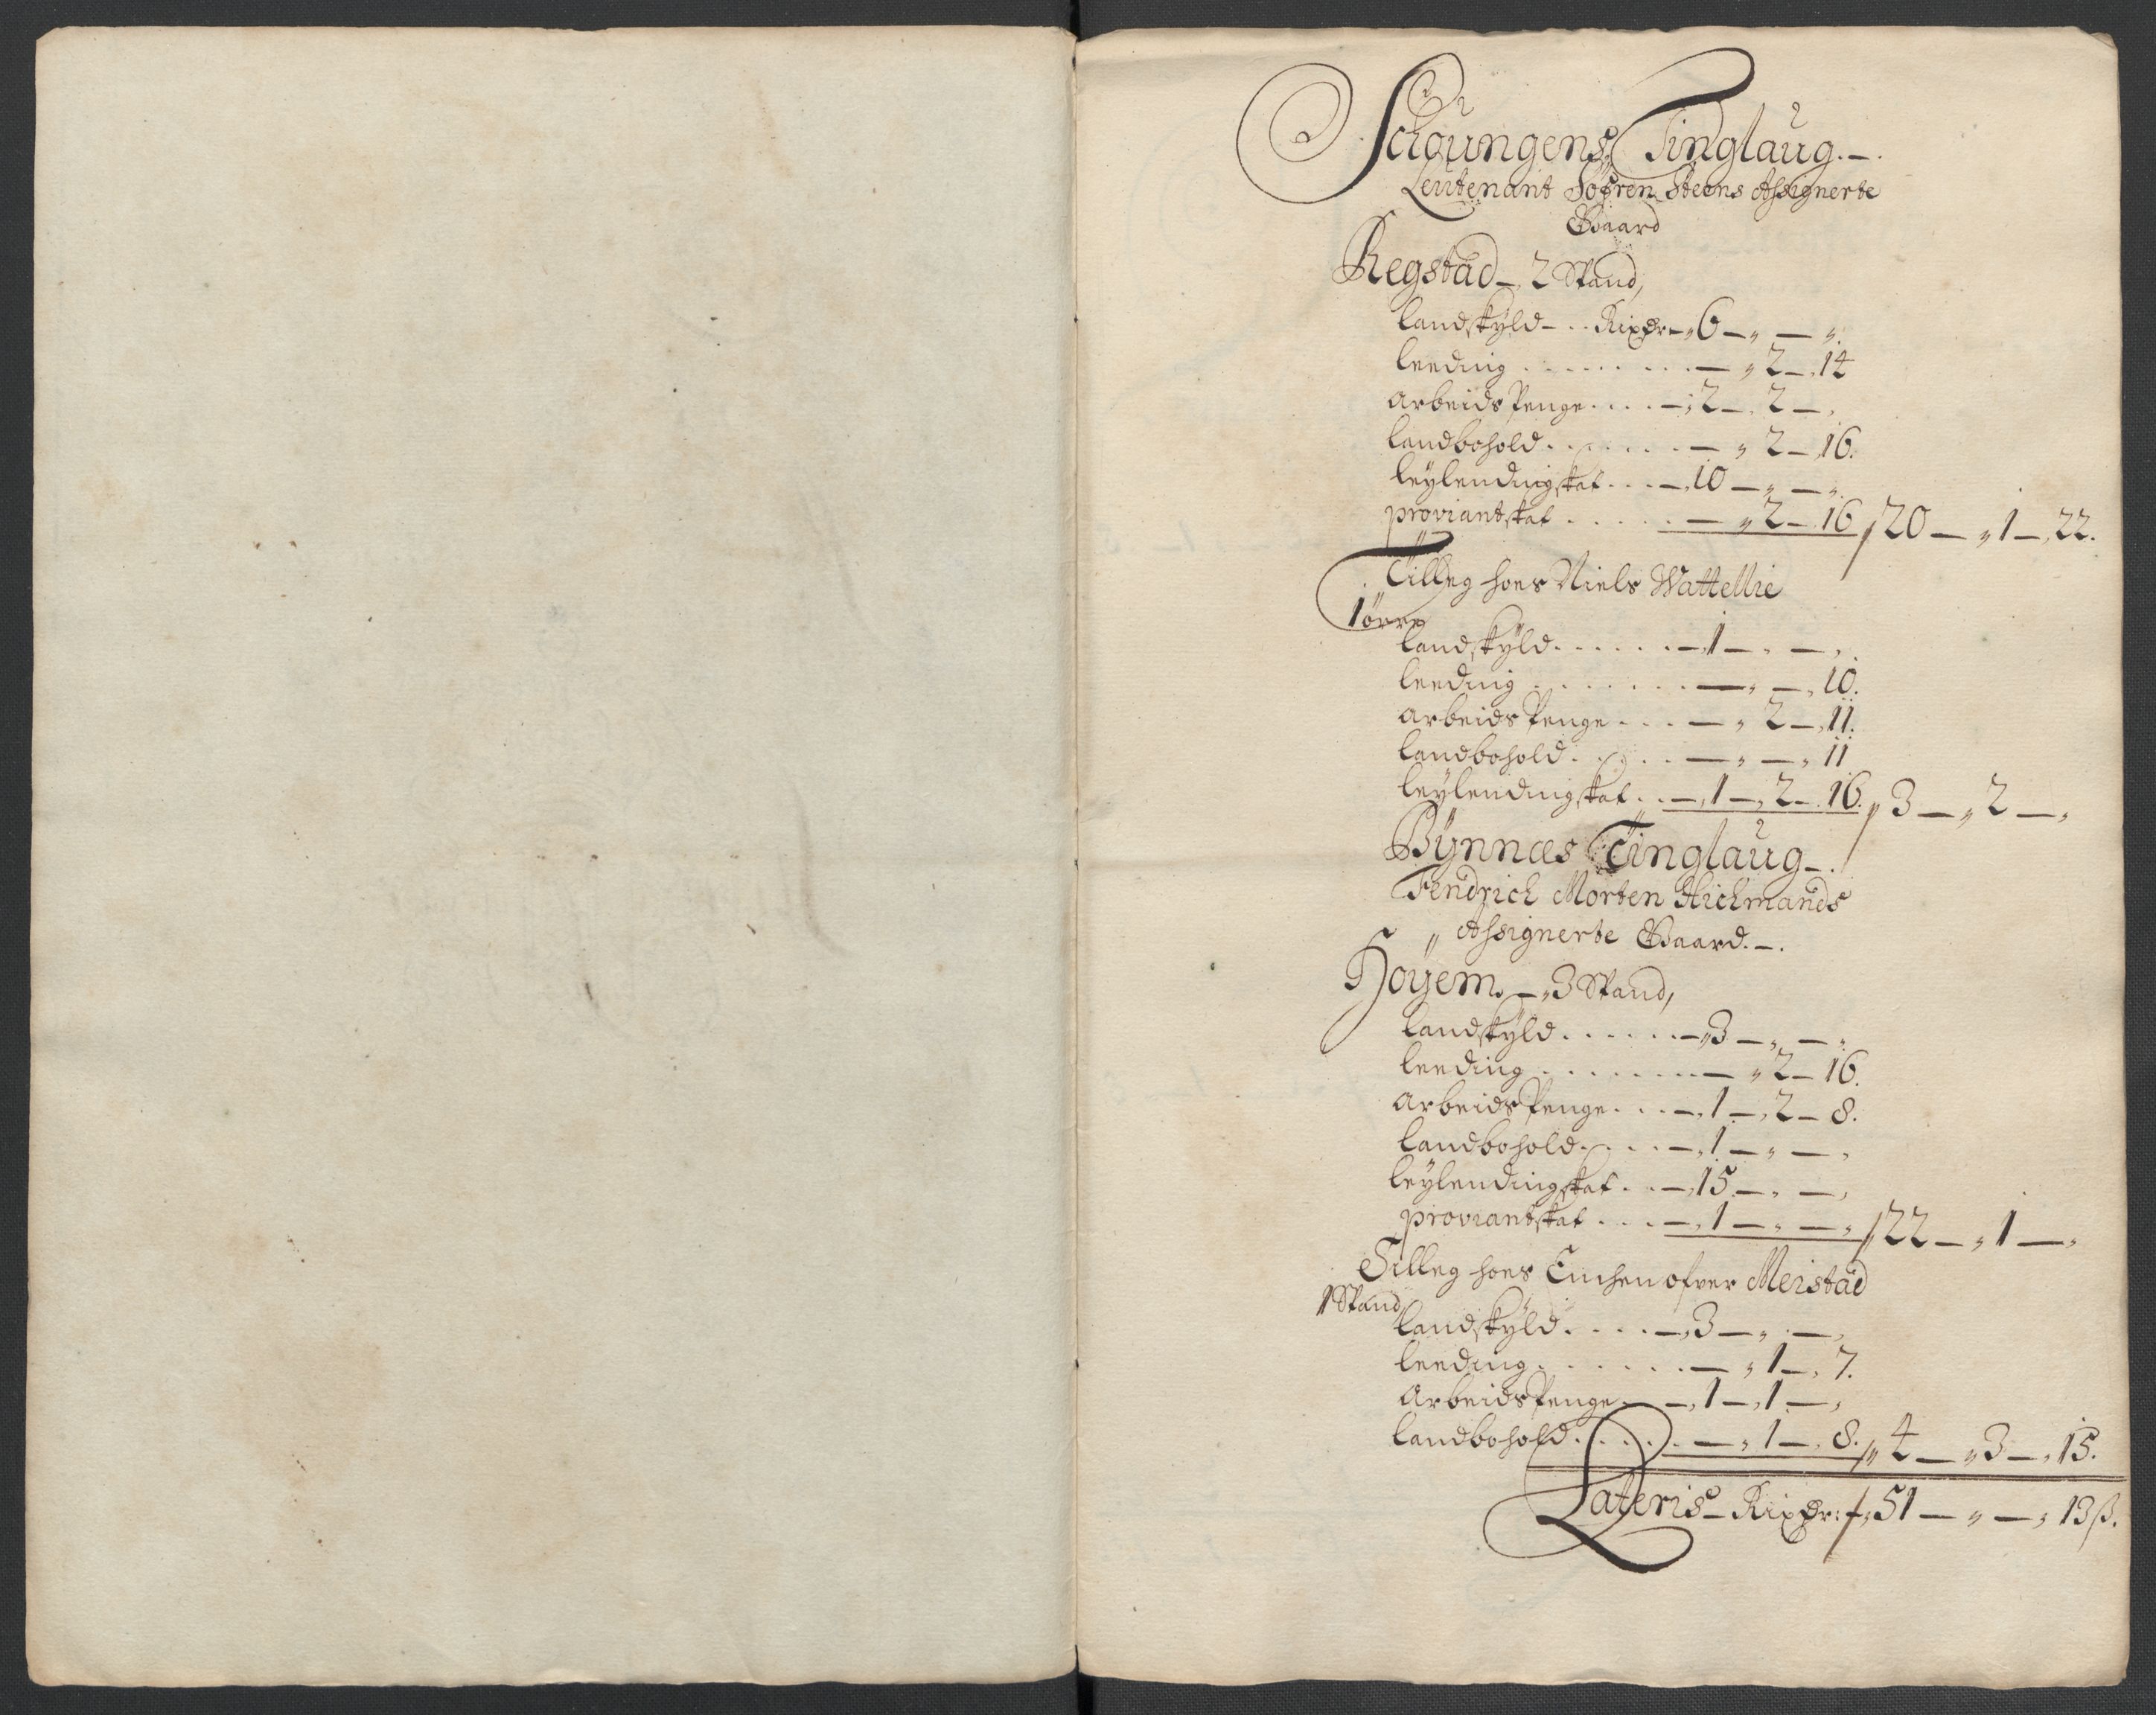 Schaungens Tinglaug.-.
Leutenant Søfren Steens Assignerte
Gaard
Regstad - 2 Spand,
landskyld - . . Rixdr - 6 - „ - „.
leeding . . . . . . . . - „ 2 - 14
arbeids Penge . . . . - 2 - 2 - ,
landbohold . . . . . . . - „ 2 - 16.
leylendingskat . . . - 10 - „ - „.
proviantskat . . . . . - „ 2 - 16 / 20 - „ 1 - 22.
Tilleg hoes Niels Wattellie
1 ørre
landskyld . . . . . . - 1 - „ - ,
leeding . . . . . . . - „ - , 10.
arbeids Penge . . . - „ 2 - 11.
landbohold . . . . - „ - „ 11
leylendingskat . . - 1 - 2 - 16. // 3 - „ 2 - ,
Bynnæs Tinglaug -.
Fendrich Morten Hichmands
Assignerte Gaard. -.
Høyem. - „ 3 Spand,
landskyld . . . . . . - 3 - „ - „
leeding . . . . . . . . - „ 2 - 16.
arbeids Penge . . . - 1 - 2 - 8.
landbohold . . . . - 1 - „ - ,
leylendingskat . . - 15 - „ - ,
proviantskat . . . . - 1 - „ - „ // 22 - „ 1 - „
Tilleg hoes Enchen ofver Meistad
1 Spand
landskyld . . . . - 3 - „ - ,
leeding . . . . . . . - „ 1 - , 7.
arbeids Penge . - 1 - 1 - ,
landbohold . . . . . - „ 1 - 8. // 4 - „ 3 - , 15.
Lateris - Rixdr: / 51 - „ - „ 13 ß.